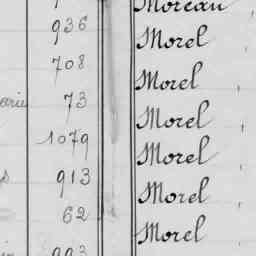 Moreau
936 Morel
708 Morel
73 Morel
1079 Morel
913 Morel
62 Morel
993